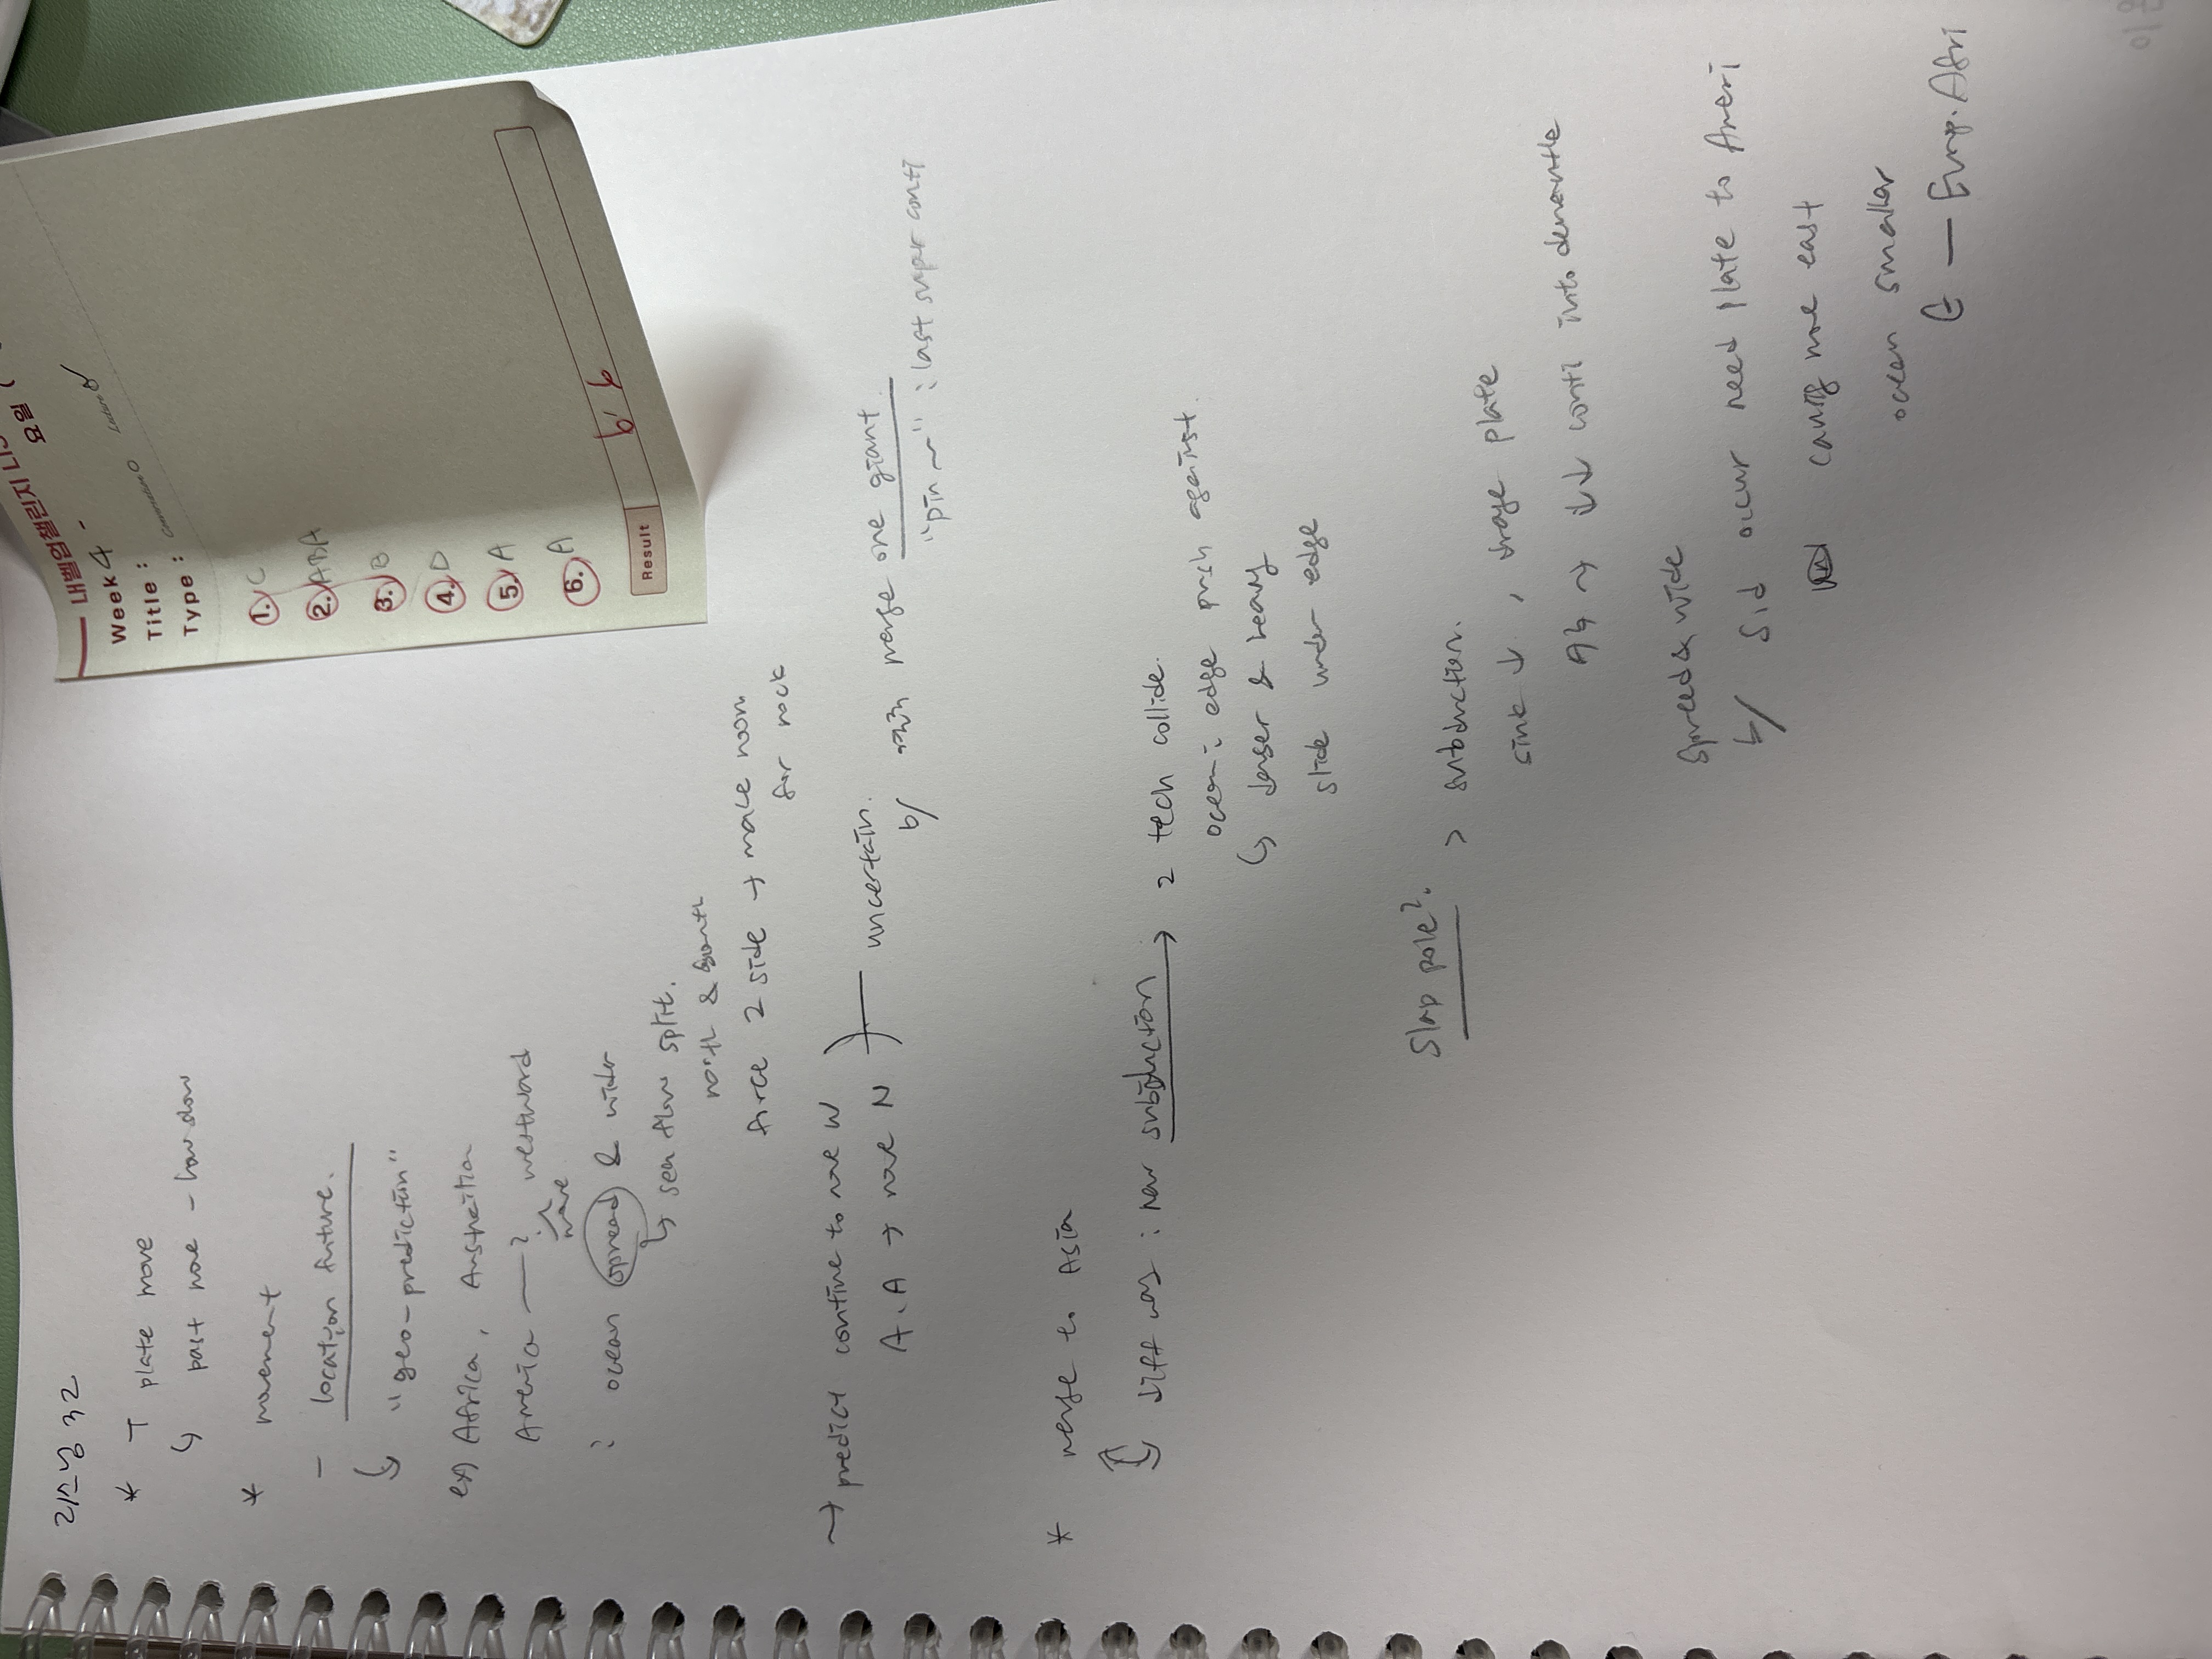 리스닝 32
* T plate move
↳ past move - how slow
* movement
- location future.
↳ "geo-prediction"
ex) Africa, Austrailian
America —? westward
move
: ocean spread & wider
↳ sea flow split.
north & south
force 2 side → make room
for rock
→ predict contine to move W
A.A → move N
uncertain.
b/ merge one giant
"pin ~" : last super conti
* merge to Asia
↳ diff way : new subduction → 2 tech collide.
ocean: edge push against.
↳ denser & heavy
slide under edge
Slap pole?. > subduction.
sink ↓, drage plate
At ~ ↓↓ conti into
Spread & wide
b/ Sid occur need plate to Ameri
causing move east
ocean smaller
— Europ. Afri
내벨업챌린지
요일 (
Week 4 -
Title :
Type :
1. C
2. ABA
3. B
4. D
5. A
6. A
Result